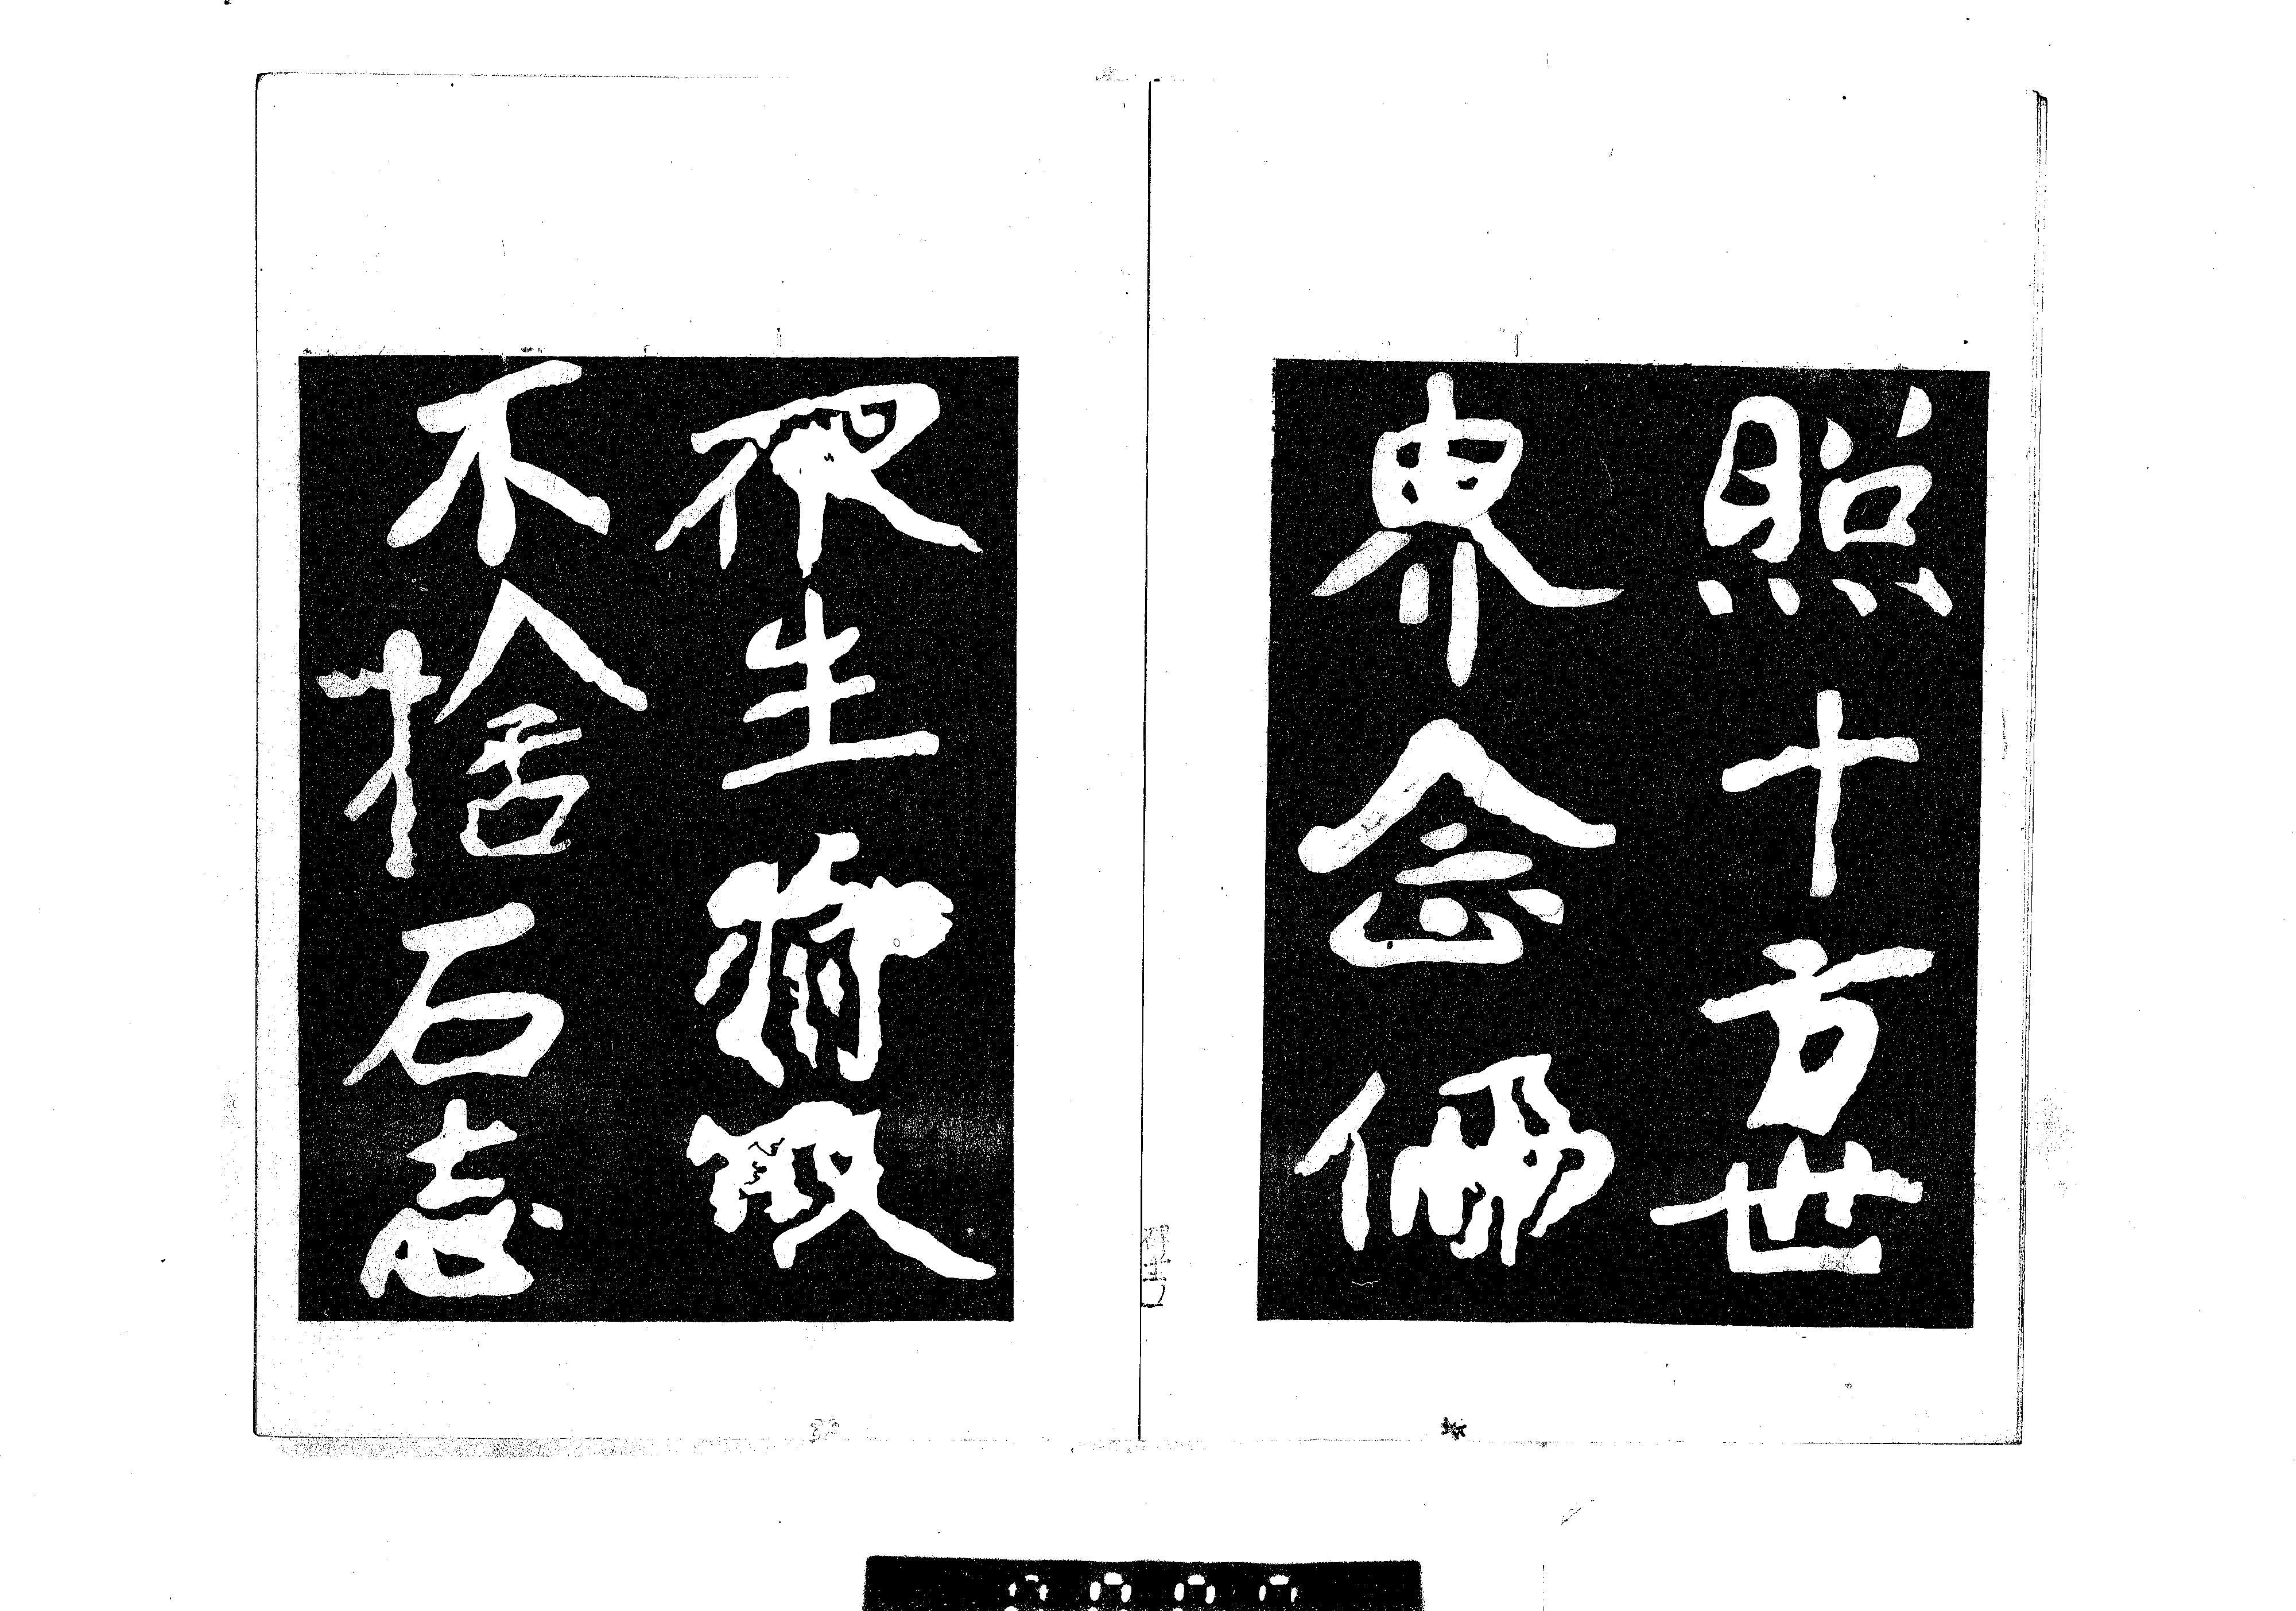 照十方世
界念佛
衆生攝取
不捨石志